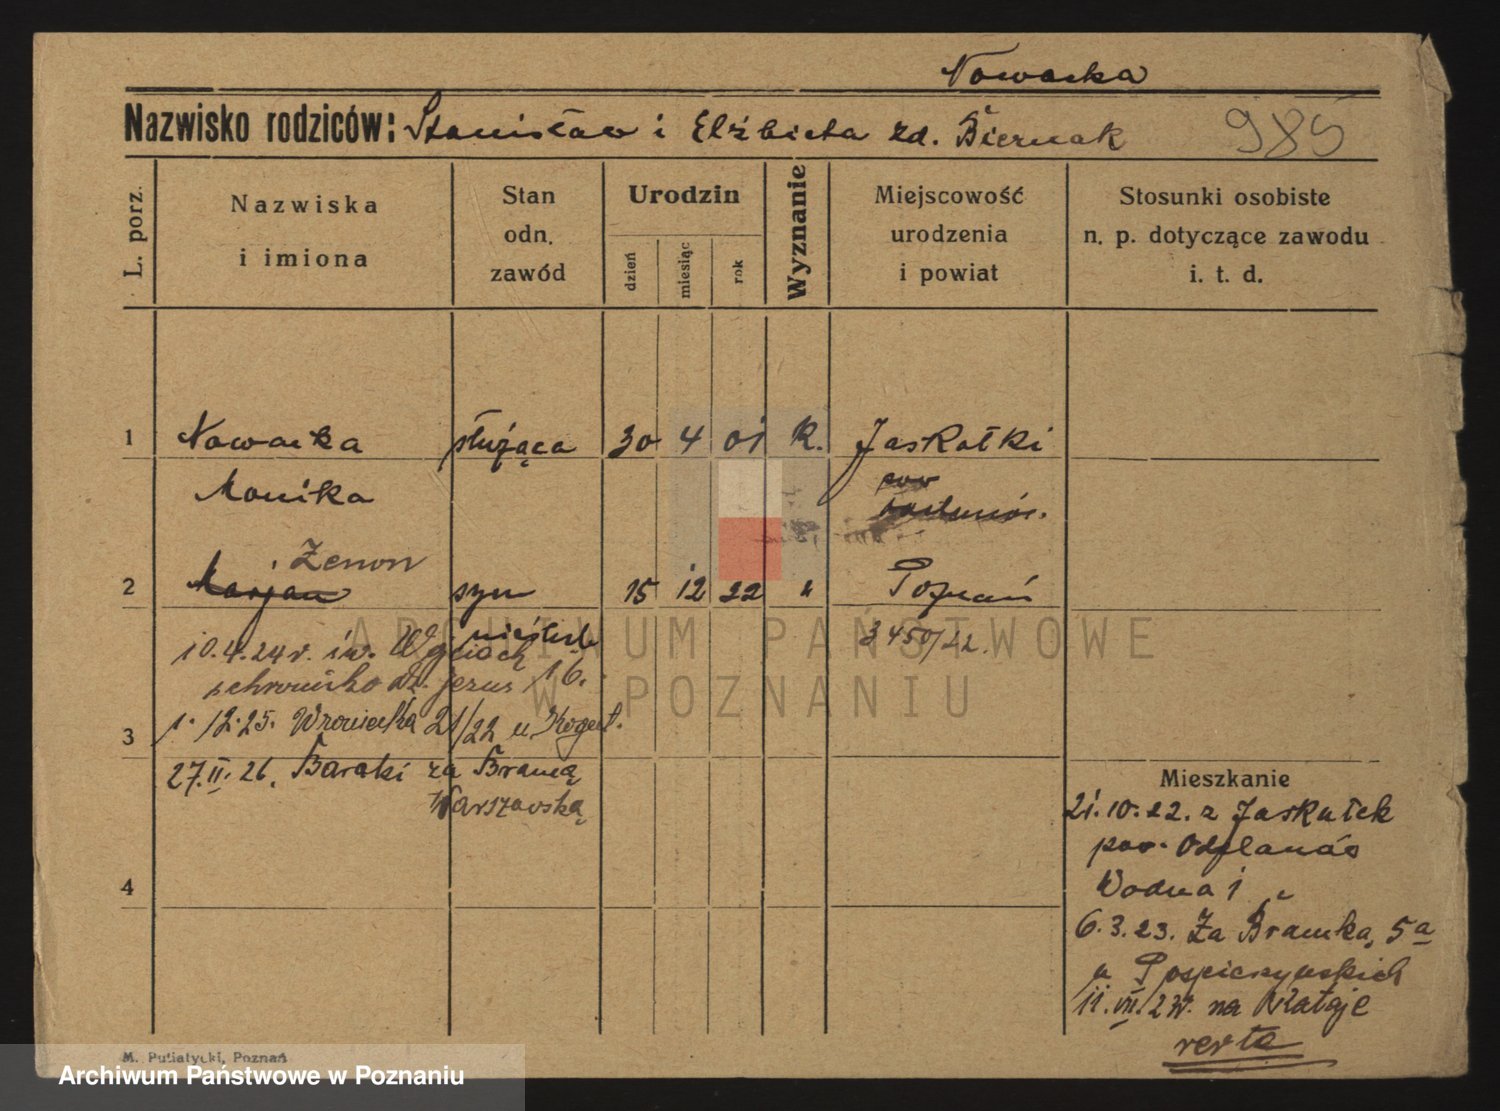 Nowacka
Nazwisko rodziców: Stanisław i Elżbieta zd. Biernak
985
L. porz.
Nazwiska
i imiona
Stan
odn.
zawód
Urodzin
dzień
miesiąc
rok
Wyznanie
Miejscowość
urodzenia
i powiat
Stosunki osobiste
n. p. dotyczące zawodu
i. t. d.
1 Nowacka służąca 30 4 01 k. Jaskółki
Monika
pow
Zenon
2 Marjan syn 15 12 22 " Poznań
nieślub
3450/22.
10.4.24r. św.
schronisko Dz. Jezus 16.
3 1.12.25. Wroniecka 21/22 u
27.II.26. Baraki za Bramą
Warszawską
4
Mieszkanie
21.10.22. z Jaskułek
pow. Odolanów
Wodna 1
6.3.23. Za Bramką 5a
u
11.VII.23r. na Rataje
verte
M. Putiatycki, Poznań
ARCHIWUM PAŃSTWOWE
W POZNANIU
Archiwum Państwowe w Poznaniu